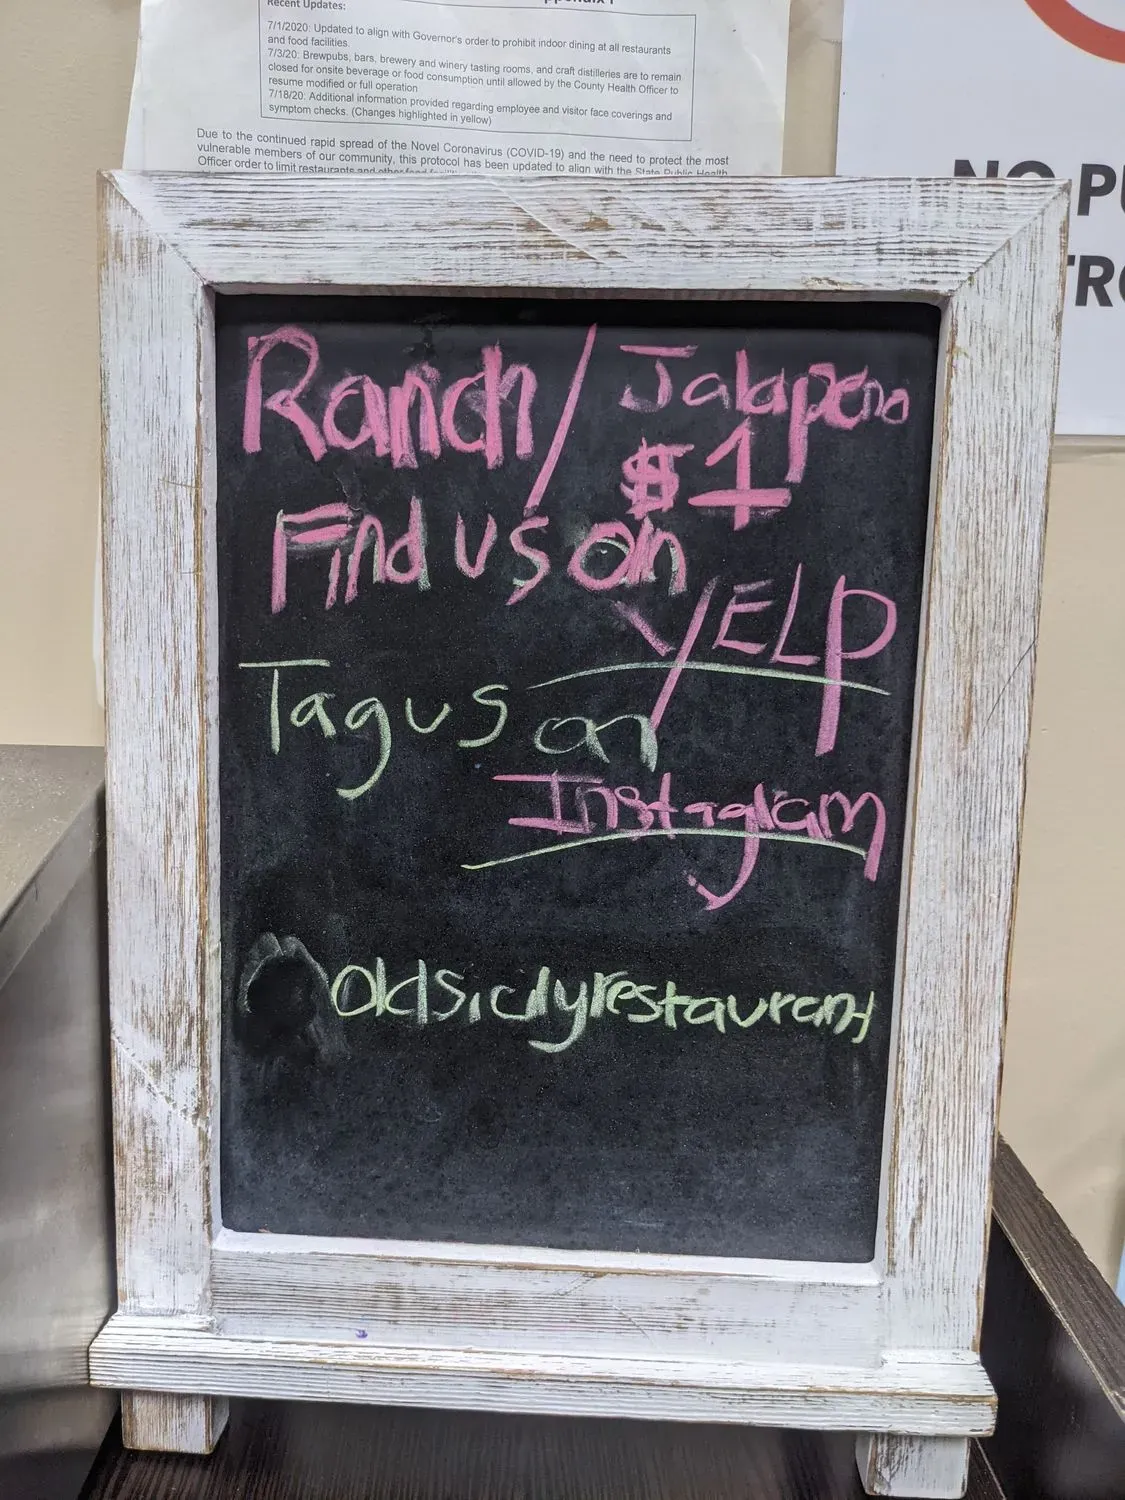 Recent Updates:
7/1/2020: Updated to align with Governor's order to prohibit indoor dining at all restaurants
and food facilities.
7/3/20: Brewpubs, bars, brewery and winery tasting rooms, and craft distilleries are to remain
closed for onsite beverage or food consumption until allowed by the County Health Officer to
resume modified or full operation
7/18/20: Additional information provided regarding employee and visitor face coverings and
symptom checks. (Changes highlighted in yellow)
Due to the continued rapid spread of the Novel Coronavirus (COVID-19) and the need to protect the most
vulnerable members of our community, this protocol has been updated to align with the State Public Health
Officer order to limit restaurants and other food
NO
Ranch / Jalapeno
$1
Find us on
YELP
Tag us on
Instagram
Oldsicilyrestaurant